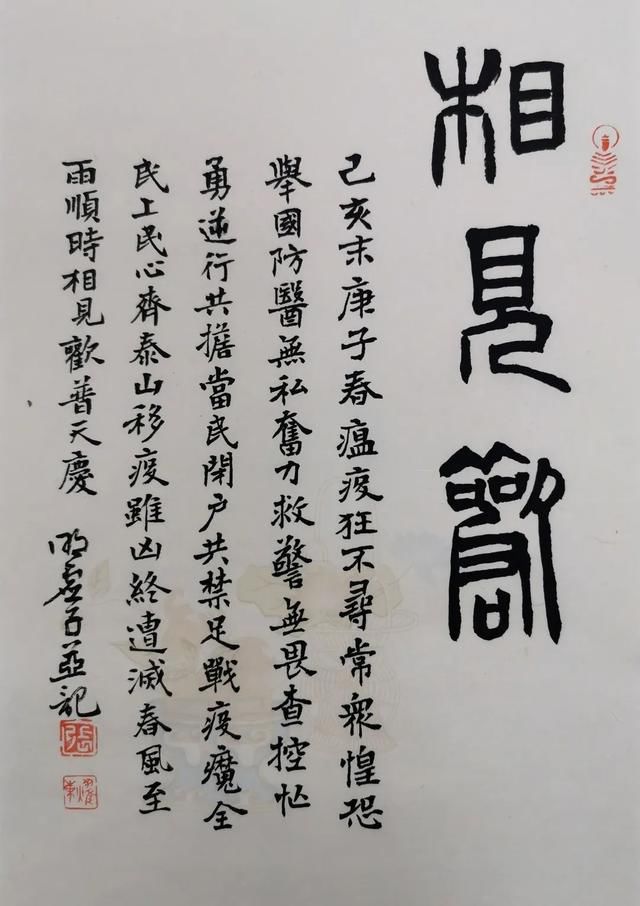 相見歡
己亥末庚子春瘟疫狂不尋常衆惶恐
舉國防醫無私奮力救警無畏查控忙
勇逆行共擔當民閉户共禁足戰疫魔全
民上民心齊泰山移疫雖凶終遭滅春風至
雨順時相見歡普天慶
子並記
張